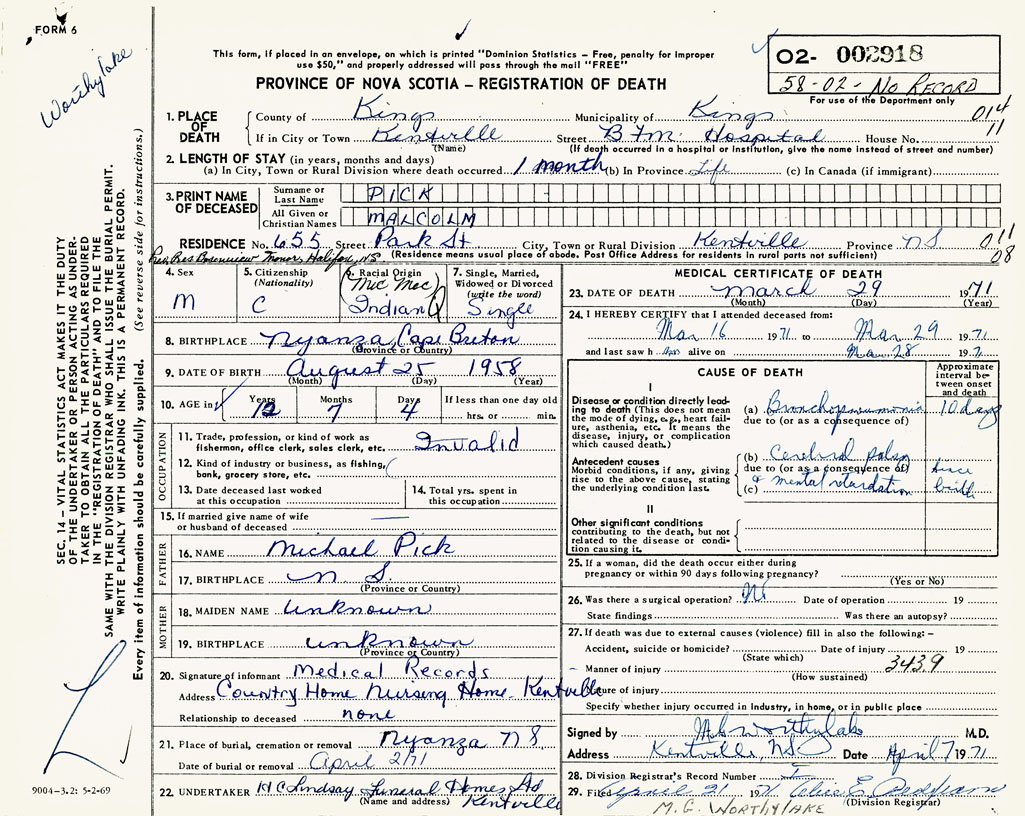 FORM 6
Worthylake
This form, if placed in an envelope, on which is printed "Dominion Statistics – Free, penalty for improper
use $50," and properly addressed will pass through the mail "FREE"
O2- 002918
58-02- NO RECORD
For use of the Department only
PROVINCE OF NOVA SCOTIA – REGISTRATION OF DEATH
1. PLACE OF DEATH
County of Kings Municipality of Kings 014
If in City or Town Kentville Street B F M. Hospital House No. 11
(Name) (If death occurred in a hospital or institution, give the name instead of street and number)
2. LENGTH OF STAY (in years, months and days)
(a) In City, Town or Rural Division where death occurred 1 month (b) In Province Life (c) In Canada (if immigrant)
3. PRINT NAME OF DECEASED
Surname or Last Name PICK
All Given or Christian Names MALCOLM
RESIDENCE No. 655 Street Park St. City, Town or Rural Division Kentville Province NS 011
08
Halifax, NS (Residence means usual place of abode. Post Office Address for residents in rural parts not sufficient)
4. Sex M
5. Citizenship (Nationality) C
6. Racial Origin (Mic Mac) Indian
7. Single, Married, Widowed or Divorced (write the word) Single
8. BIRTHPLACE Nyanza, Cape Breton
(Province or Country)
9. DATE OF BIRTH August 25 1958
(Month) (Day) (Year)
10. AGE in Years 12 Months 7 Days 4 If less than one day old
hrs. or min.
OCCUPATION
11. Trade, profession, or kind of work as fisherman, office clerk, sales clerk, etc. Invalid
12. Kind of industry or business, as fishing, bank, grocery store, etc.
13. Date deceased last worked at this occupation
14. Total yrs. spent in this occupation
15. If married give name of wife or husband of deceased
FATHER
16. NAME Michael Pick
17. BIRTHPLACE N S.
(Province or Country)
MOTHER
18. MAIDEN NAME unknown
19. BIRTHPLACE unknown
(Province or Country)
20. Signature of informant Medical Records
Address Country Home Nursing Home. Kentville
Relationship to deceased none
21. Place of burial, cremation or removal Nyanza NS
Date of burial or removal April 2/71
22. UNDERTAKER H C Lindsay Funeral Homes
(Name and address) Kentville
MEDICAL CERTIFICATE OF DEATH
23. DATE OF DEATH March 29 1971
(Month) (Day) (Year)
24. I HEREBY CERTIFY that I attended deceased from:
Mar 16 1971 to Mar 29 1971
and last saw h im alive on Mar 28 1971
CAUSE OF DEATH
Approximate interval between onset and death
I
Disease or condition directly leading to death (This does not mean the mode of dying, e.g., heart failure, asthenia, etc. It means the disease, injury, or complication which caused death.)
(a) Bronchopneumonia 10 days
due to (or as a consequence of)
Antecedent causes
Morbid conditions, if any, giving rise to the above cause, stating the underlying condition last.
(b) Cerebral palsy
due to (or as a consequence of) since
(c) & mental retardation birth
II
Other significant conditions contributing to the death, but not related to the disease or condition causing it.
25. If a woman, did the death occur either during pregnancy or within 90 days following pregnancy?
(Yes or No)
26. Was there a surgical operation? No Date of operation 19
State findings Was there an autopsy?
27. If death was due to external causes (violence) fill in also the following: –
Accident, suicide or homicide? Date of injury 19
(State which)
Manner of injury 343.9
(How sustained)
Nature of injury
Specify whether injury occurred in industry, in home, or in public place
Signed by M G Worthylake M.D.
Address Kentville, NS Date April 7 1971
28. Division Registrar's Record Number
29. Filed April 21 1971
(Division Registrar)
M. G. WORTHYLAKE
SEC. 14 – VITAL STATISTICS ACT MAKES IT THE DUTY
OF THE UNDERTAKER OR PERSON ACTING AS UNDER-
TAKER TO OBTAIN ALL THE PARTICULARS REQUIRED
IN THE "REGISTRATION OF DEATH" AND TO FILE THE
SAME WITH THE DIVISION REGISTRAR WHO SHALL ISSUE THE BURIAL PERMIT.
WRITE PLAINLY WITH UNFADING INK. THIS IS A PERMANENT RECORD.
Every item of information should be carefully supplied. (See reverse side for instructions.)
9004-3.2: 5-2-69